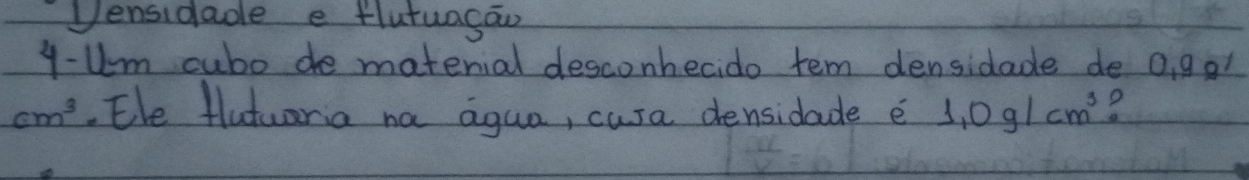 Densidade e flutuação
4-Um cubo de material desconhecido tem densidade de 0,9 g/
cm³. Ele flutuaria na água, cuja densidade é 1,0 g/cm³?